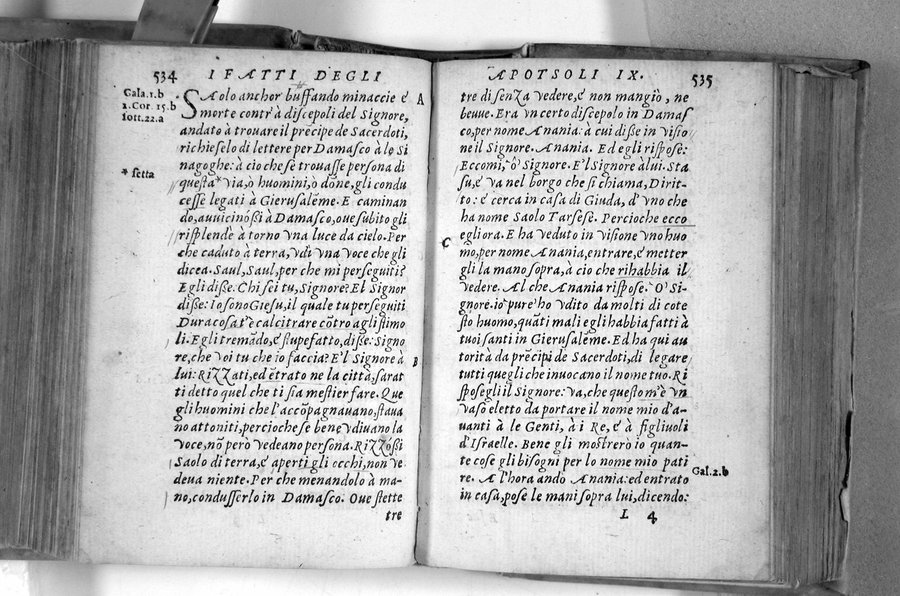 534
I FATTI DEGLI
Gala.1.b
2.Cor. 15.b
sott.22.a
* setta
SAolo anchor buffando minaccie é A
morte contr'à discepoli del Signore,
andato à trouare il prēcipe de Sacerdoti,
richieselo di lettere per Damasco à le Si
nagoghe: à cio che sè trouasse persona di
questa* via, o huomini, o dōne, gli condu
cesse legati à Gierusalēme. E caminan
do, auuicinòßi à Damasco, oue sùbito gli
risplendè à torno vna luce da cielo. Per
che caduto à terra, vdì vna voce che gli
dicea. Saul, Saul, per che mi perseguiti?
Egli diße. Chi sei tu, Signore? E'l Signor
diße: Io sono Giesu, il quale tu perseguiti
Dura cosa t'è calcitrare cōtro agli stimo
li. Egli tremādo, é stupefatto, diße: Signo
re, che voi tu che io faccia? E'l Signore à
lui: RiZZati, ed ētrato ne la città, sarat B
ti detto quel che ti sia mestier fare. Que
gli huomini che l'accōpagnauano, staua
no attoniti, percioche se bene vdiuano la
voce, nō però vedeano persona. RiZZoßi
Saolo di terra, é aperti gli occhi, non ve
deua niente. Per che menandolo à ma-
no, condusserlo in Damasco. Oue stette
tre
APOTSOLI IX.
535
tre di senZa vedere, é non mangiò, ne
beuue. Era vn certo discepolo in Damas
co, per nome Anania: à cui diße in visio
ne il Signore. Anania. Ed egli rispose:
Eccomi, ô Signore. E'l Signore à lui. Sta
su, é va nel borgo che si chiama, Dirit-
to: é cerca in casa di Giuda, d'vno che
ha nome Saolo Tarsese. Percioche ecco
egli ora. E ha veduto in visione vno huo
C
mo, per nome Anania, entrare, é metter
gli la mano sopra, à cio che rihabbia il
vedere. Al che Anania rispose. O' Si-
gnore. io pure ho vdito da molti di cote
sto huomo, quāti mali egli habbia fatti à
tuoi santi in Gierusalēme. Ed ha qui au
torità da prēcipi de Sacerdoti, di legare
tutti quegli che inuocano il nome tuo. Ri
sposegli il Signore: Va, che questo m'è vn
vaso eletto da portare il nome mio d'a-
uanti à le Genti, à i Re, é à figliuoli
d'Israelle. Bene gli mostrerò io quan-
te cose gli bisogni per lo nome mio pati
Gal.2.b
re. A l'hora ando Anania: ed entrato
in casa, pose le mani sopra lui, dicendo:
L 4